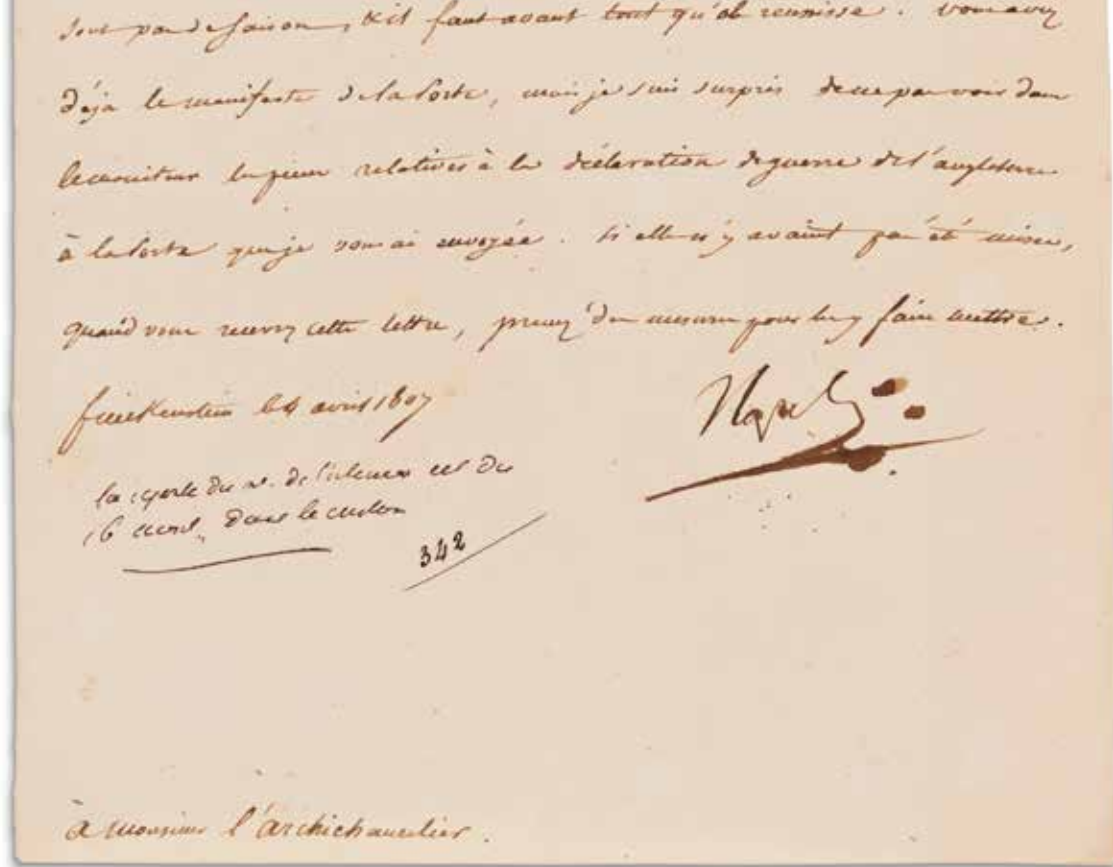 sont pas de saison, & il faut avant tout qu'ob reunisse. vous avez
déja le manifeste de la Porte, mais je suis surpris de ne pas voir dans
le moniteur les pieces relatives à la déclaration de guerre de l'angleterre
à la Porte que je vous ai envoyée. si elles n'y avaient pas été mises,
quand vous recevrez cette lettre, prenez des mesures pour les y faire mettre.
finckenstein le 4 avril 1807
Nap
la copie du de est du
16 dans le carton
342
à Monsieur l'archichancelier.